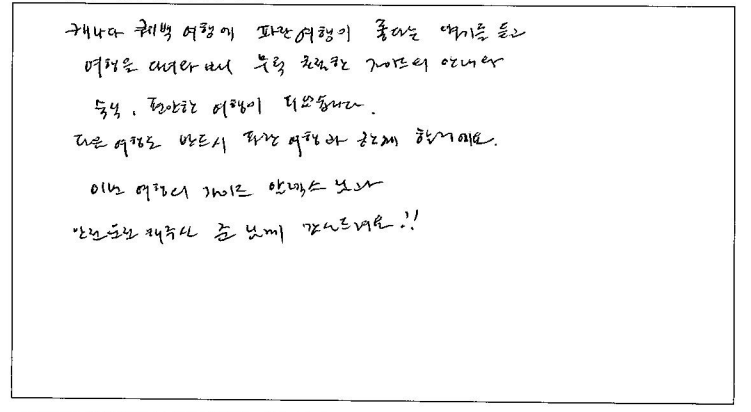 캐나다 퀘백 여행에 파란여행이 좋다는 얘기를 듣고
여행을 다녀와 보니 무척 훌륭한 가이드의 안내와
숙식, 편안한 여행이 되었습니다.
다음 여행도 반드시 파란 여행과 함께 할거예요.
이번 여행의 가이드 알렉스 님과
안전운전 해주신 준 님께 감사드려요!!